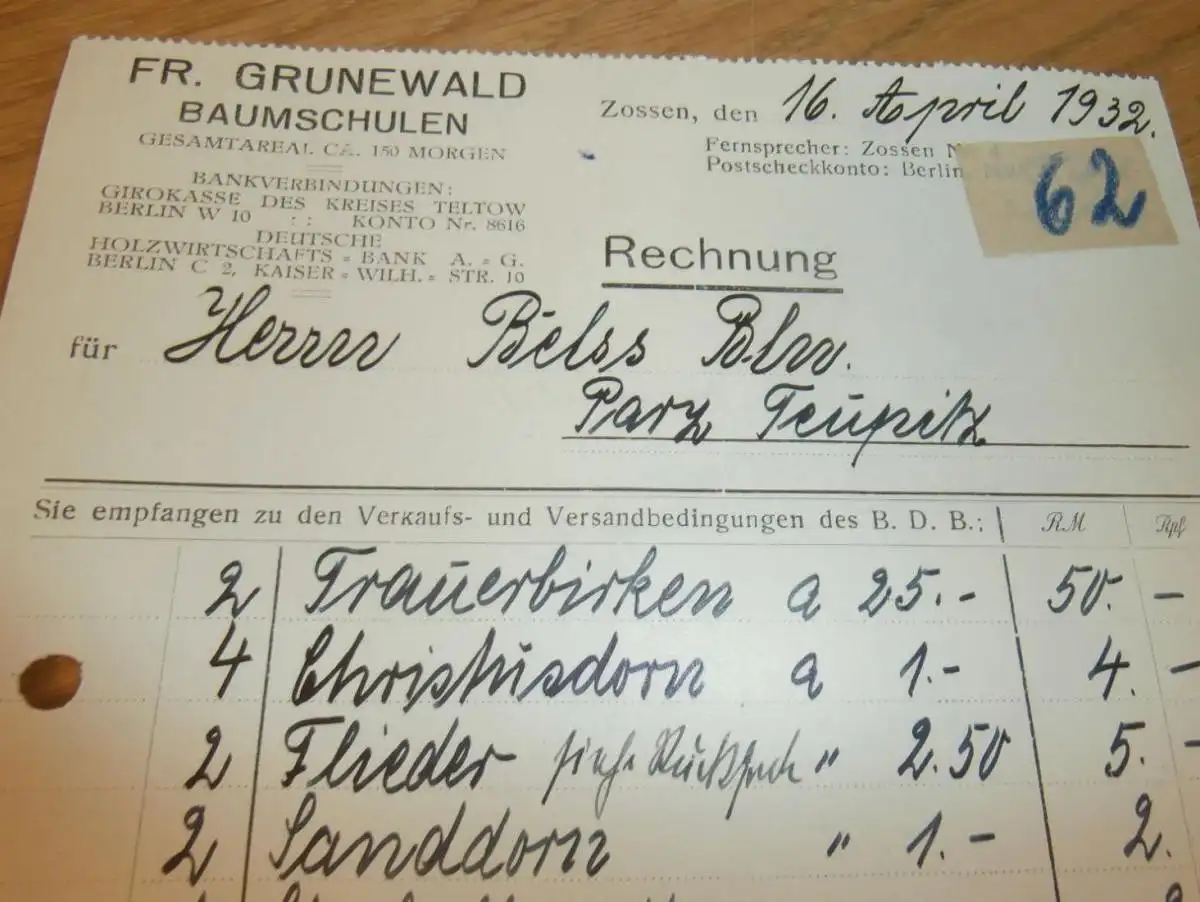 FR. GRUNEWALD
BAUMSCHULEN
GESAMTAREAL CA. 150 MORGEN
BANKVERBINDUNGEN:
GIROKASSE DES KREISES TELTOW
BERLIN W 10 : : KONTO Nr. 8616
DEUTSCHE
HOLZWIRTSCHAFTS = BANK A. = G.
BERLIN C 2, KAISER = WILH. = STR. 10
Zossen, den 16. April 1932.
Fernsprecher: Zossen
Postscheckkonto: Berlin
62
Rechnung
für Herrn Belss Bln.
Parz Teupitz
Sie empfangen zu den Verkaufs- und Versandbedingungen des B. D. B.: RM Rpf
2 Trauerbirken a 25.- 50. -
4 Christusdorn a 1.- 4. -
2 Flieder " 2.50 5. -
2 Sanddorn " 1.- 2.